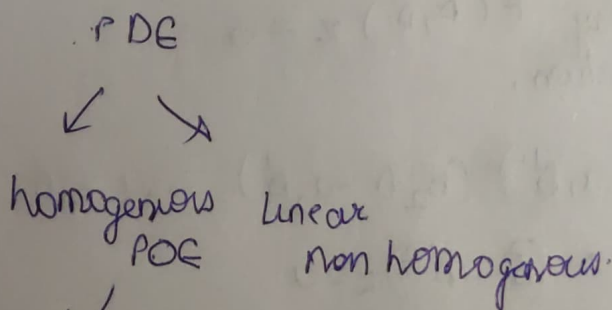 PDE
homogenous Linear
PDE non homogenous.